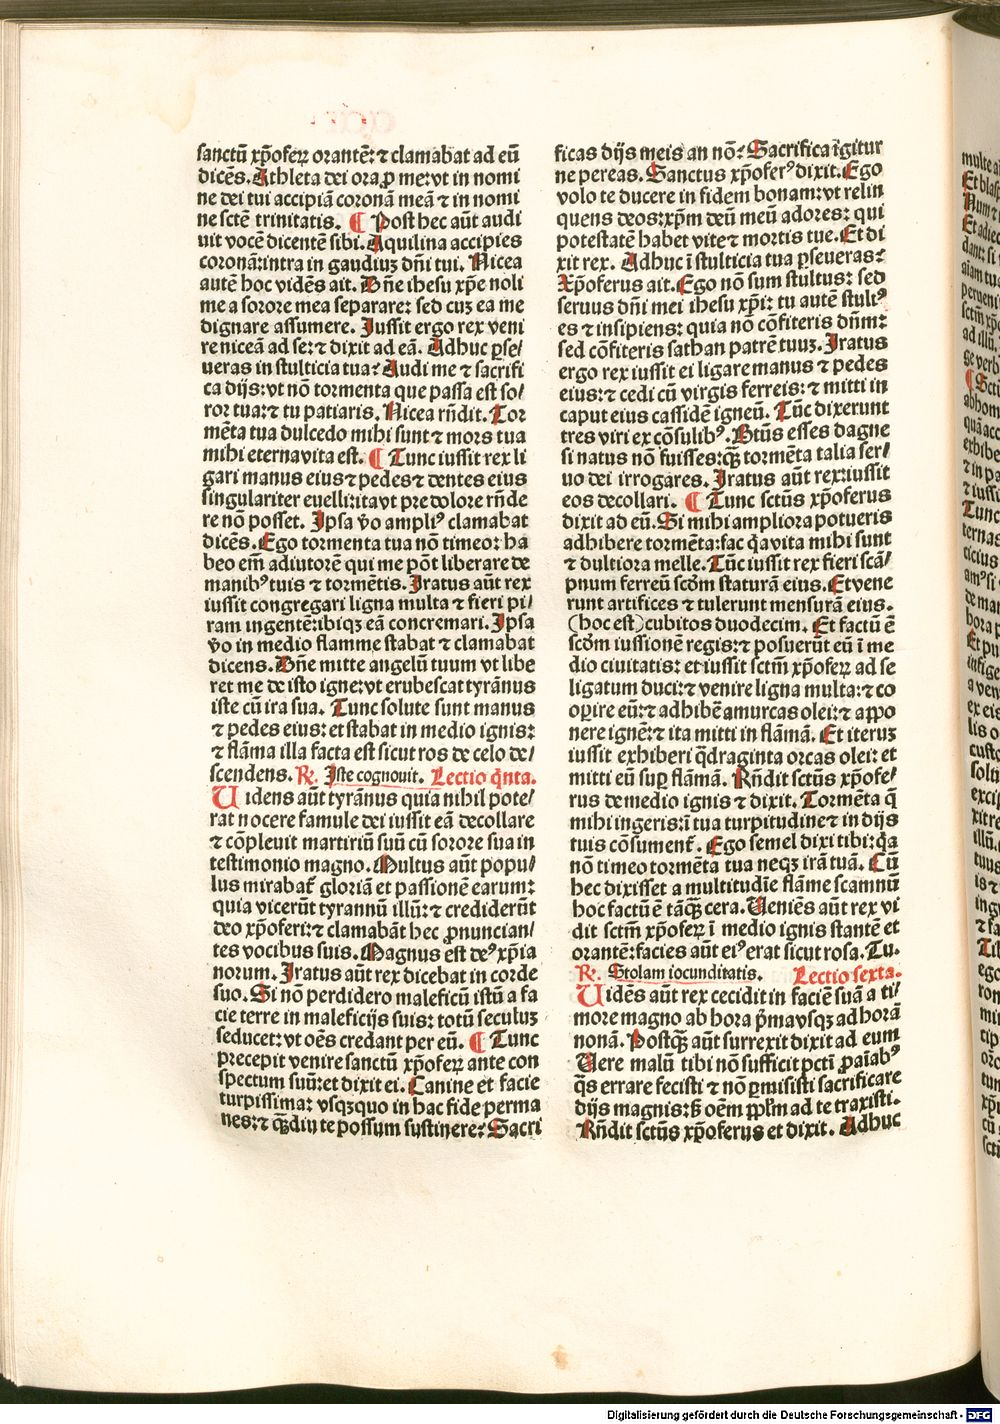 sanctū xp̄oferꝝ orantē: ⁊ clamabat ad eū
dicēs. Athleta dei ora ꝓ me: vt in nomi
ne dei tui accipiā coronā meā ⁊ in nomi
ne sctē trinitatis. ¶ Post hec aūt audi
uit vocē dicentē sibi. Aquilina accipies
coronā: intra in gaudiuꝫ dñi tui. Nicea
autē hoc vidēs ait. Dñe ihesu xp̄e noli
me a sorore mea separare: sed cuꝫ ea me
dignare assumere. Jussit ergo rex veni
re niceā ad se: ⁊ dixit ad eā. Adhuc ꝑse/
ueras in stulticia tua? Audi me ⁊ sacrifi
ca dijs: vt nō tormenta que passa est so/
ror tua: ⁊ tu patiaris. Nicea rñdit. Tor
mēta tua dulcedo mihi sunt ⁊ mors tua
mihi eterna vita est. ¶ Tunc iussit rex li
gari manus eius ⁊ pedes ⁊ dentes eius
singulariter euelli: ita vt pre dolore rñde
re nō posset. Ipsa v̄o ampliꝰ clamabat
dicēs. Ego tormenta tua nō timeo: ha
beo em̄ adiutorē qui me pōt liberare de
manibꝰ tuis ⁊ tormētis. Iratus aūt rex
iussit congregari ligna multa ⁊ fieri pi/
ram ingentē: ibiqꝫ eā concremari. Ipsa
v̄o in medio flamme stabat ⁊ clamabat
dicens. Dñe mitte angelū tuum vt libe
ret me de isto igne: vt erubescat tyrānus
iste cū ira sua. Tunc solute sunt manus
⁊ pedes eius: et stabat in medio ignis:
⁊ flāma illa facta est sicut ros de celo de/
scendens. R. Iste cognouit. Lectio q̄nta.
Uidens aūt tyrānus quia nihil pote/
rat nocere famule dei iussit eā decollare
⁊ cōpleuit martiriū suū cū sorore sua in
testimonio magno. Multus aūt popu/
lus mirabat̄ gloriā et passionē earum:
quia vicerūt tyrannū illū: ⁊ crediderūt
deo xp̄oferi: ⁊ clamabāt hec ꝓnuncian/
tes vocibus suis. Magnus est deꝰ xp̄ia
norum. Iratus aūt rex dicebat in corde
suo. Si nō perdidero maleficū istū a fa
cie terre in maleficijs suis: totū seculuꝫ
seducet: vt oēs credant per eū. ¶ Tunc
precepit venire sanctū xp̄oferꝝ ante con
spectum suū: et dixit ei. Canine et facie
turpissima: vsqꝫquo in hac fide perma
nes: ⁊ q̄ꝫdiu te possum sustinere? Sacri
ficas dijs meis an nō? Sacrifica īgitur
ne pereas. Sanctus xp̄oferꝰ dixit. Ego
volo te ducere in fidem bonam: vt relin
quens deos: xp̄m deū meū adores: qui
potestatē habet vite ⁊ mortis tue. Et di
xit rex. Adhuc ī stulticia tua ꝑseueras?
Xp̄oferus ait. Ego nō sum stultus: sed
seruus dñi mei ihesu xp̄i: tu autē stultꝰ
es ⁊ insipiens: quia nō cōfiteris dñm:
sed cōfiteris sathan patrē tuuꝫ. Iratus
ergo rex iussit ei ligare manus ⁊ pedes
eius: ⁊ cedi cū virgis ferreis: ⁊ mitti in
caput eius cassidē igneū. Tūc dixerunt
tres viri ex cōsulibꝰ. Btūs esses dagne
si natus nō fuisses: q̄ꝫ tormēta talia ser/
uo dei irrogares. Iratus aūt rex: iussit
eos decollari. ¶ Tunc sctūs xp̄oferus
dixit ad eū. Si mihi ampliora potueris
adhibere tormēta: fac q̄a vita mihi sunt
⁊ dulciora melle. Tūc iussit rex fieri scā/
pnum ferreū scd̄m staturā eius. Et vene
runt artifices ⁊ tulerunt mensurā eius.
(hoc est) cubitos duodecim. Et factū ē
scd̄m iussionē regis: ⁊ posuerūt eū ī me
dio ciuitatis: et iussit sctm̄ xp̄oferꝝ ad se
ligatum duci: ⁊ venire ligna multa: ⁊ co
operire eū: ⁊ adhibē amurcas olei: ⁊ appo
nere ignē: ⁊ ita mitti in flāmā. Et iteruꝫ
iussit exhiberi q̄draginta orcas olei: et
mitti eū suꝑ flāmā. Rñdit sctūs xp̄ofe/
rus de medio ignis ⁊ dixit. Tormēta q̄
mihi ingeris: ī tua turpitudine ⁊ in dijs
tuis cōsument̄. Ego semel dixi tibi: q̄a
nō timeo tormēta tua neqꝫ irā tuā. Cū
hec dixisset a multitudīe flāme scamnū
hoc factū ē tāq̄ꝫ cera. Ueniēs aūt rex vi
dit sctm̄ xp̄oferꝝ ī medio ignis stantē et
orantē: facies aūt eiꝰ erat sicut rosa. Tu.
R. Stolam iocunditatis. Lectio sexta.
Uidēs aūt rex cecidit in faciē suā a ti/
more magno ab hora p̄ma vsqꝫ ad horā
nonā. Postq̄ꝫ aūt surrexit dixit ad eum
Uere malū tibi nō sufficit pctī ꝓ aīabꝰ
q̄s errare fecisti ⁊ nō ꝑmisisti sacrificare
dijs magnis: ß oēm pp̄lm ad te traxisti.
Rñdit sctūs xp̄oferus et dixit. Adhuc
Digitalisierung gefördert durch die Deutsche Forschungsgemeinschaft - DFG